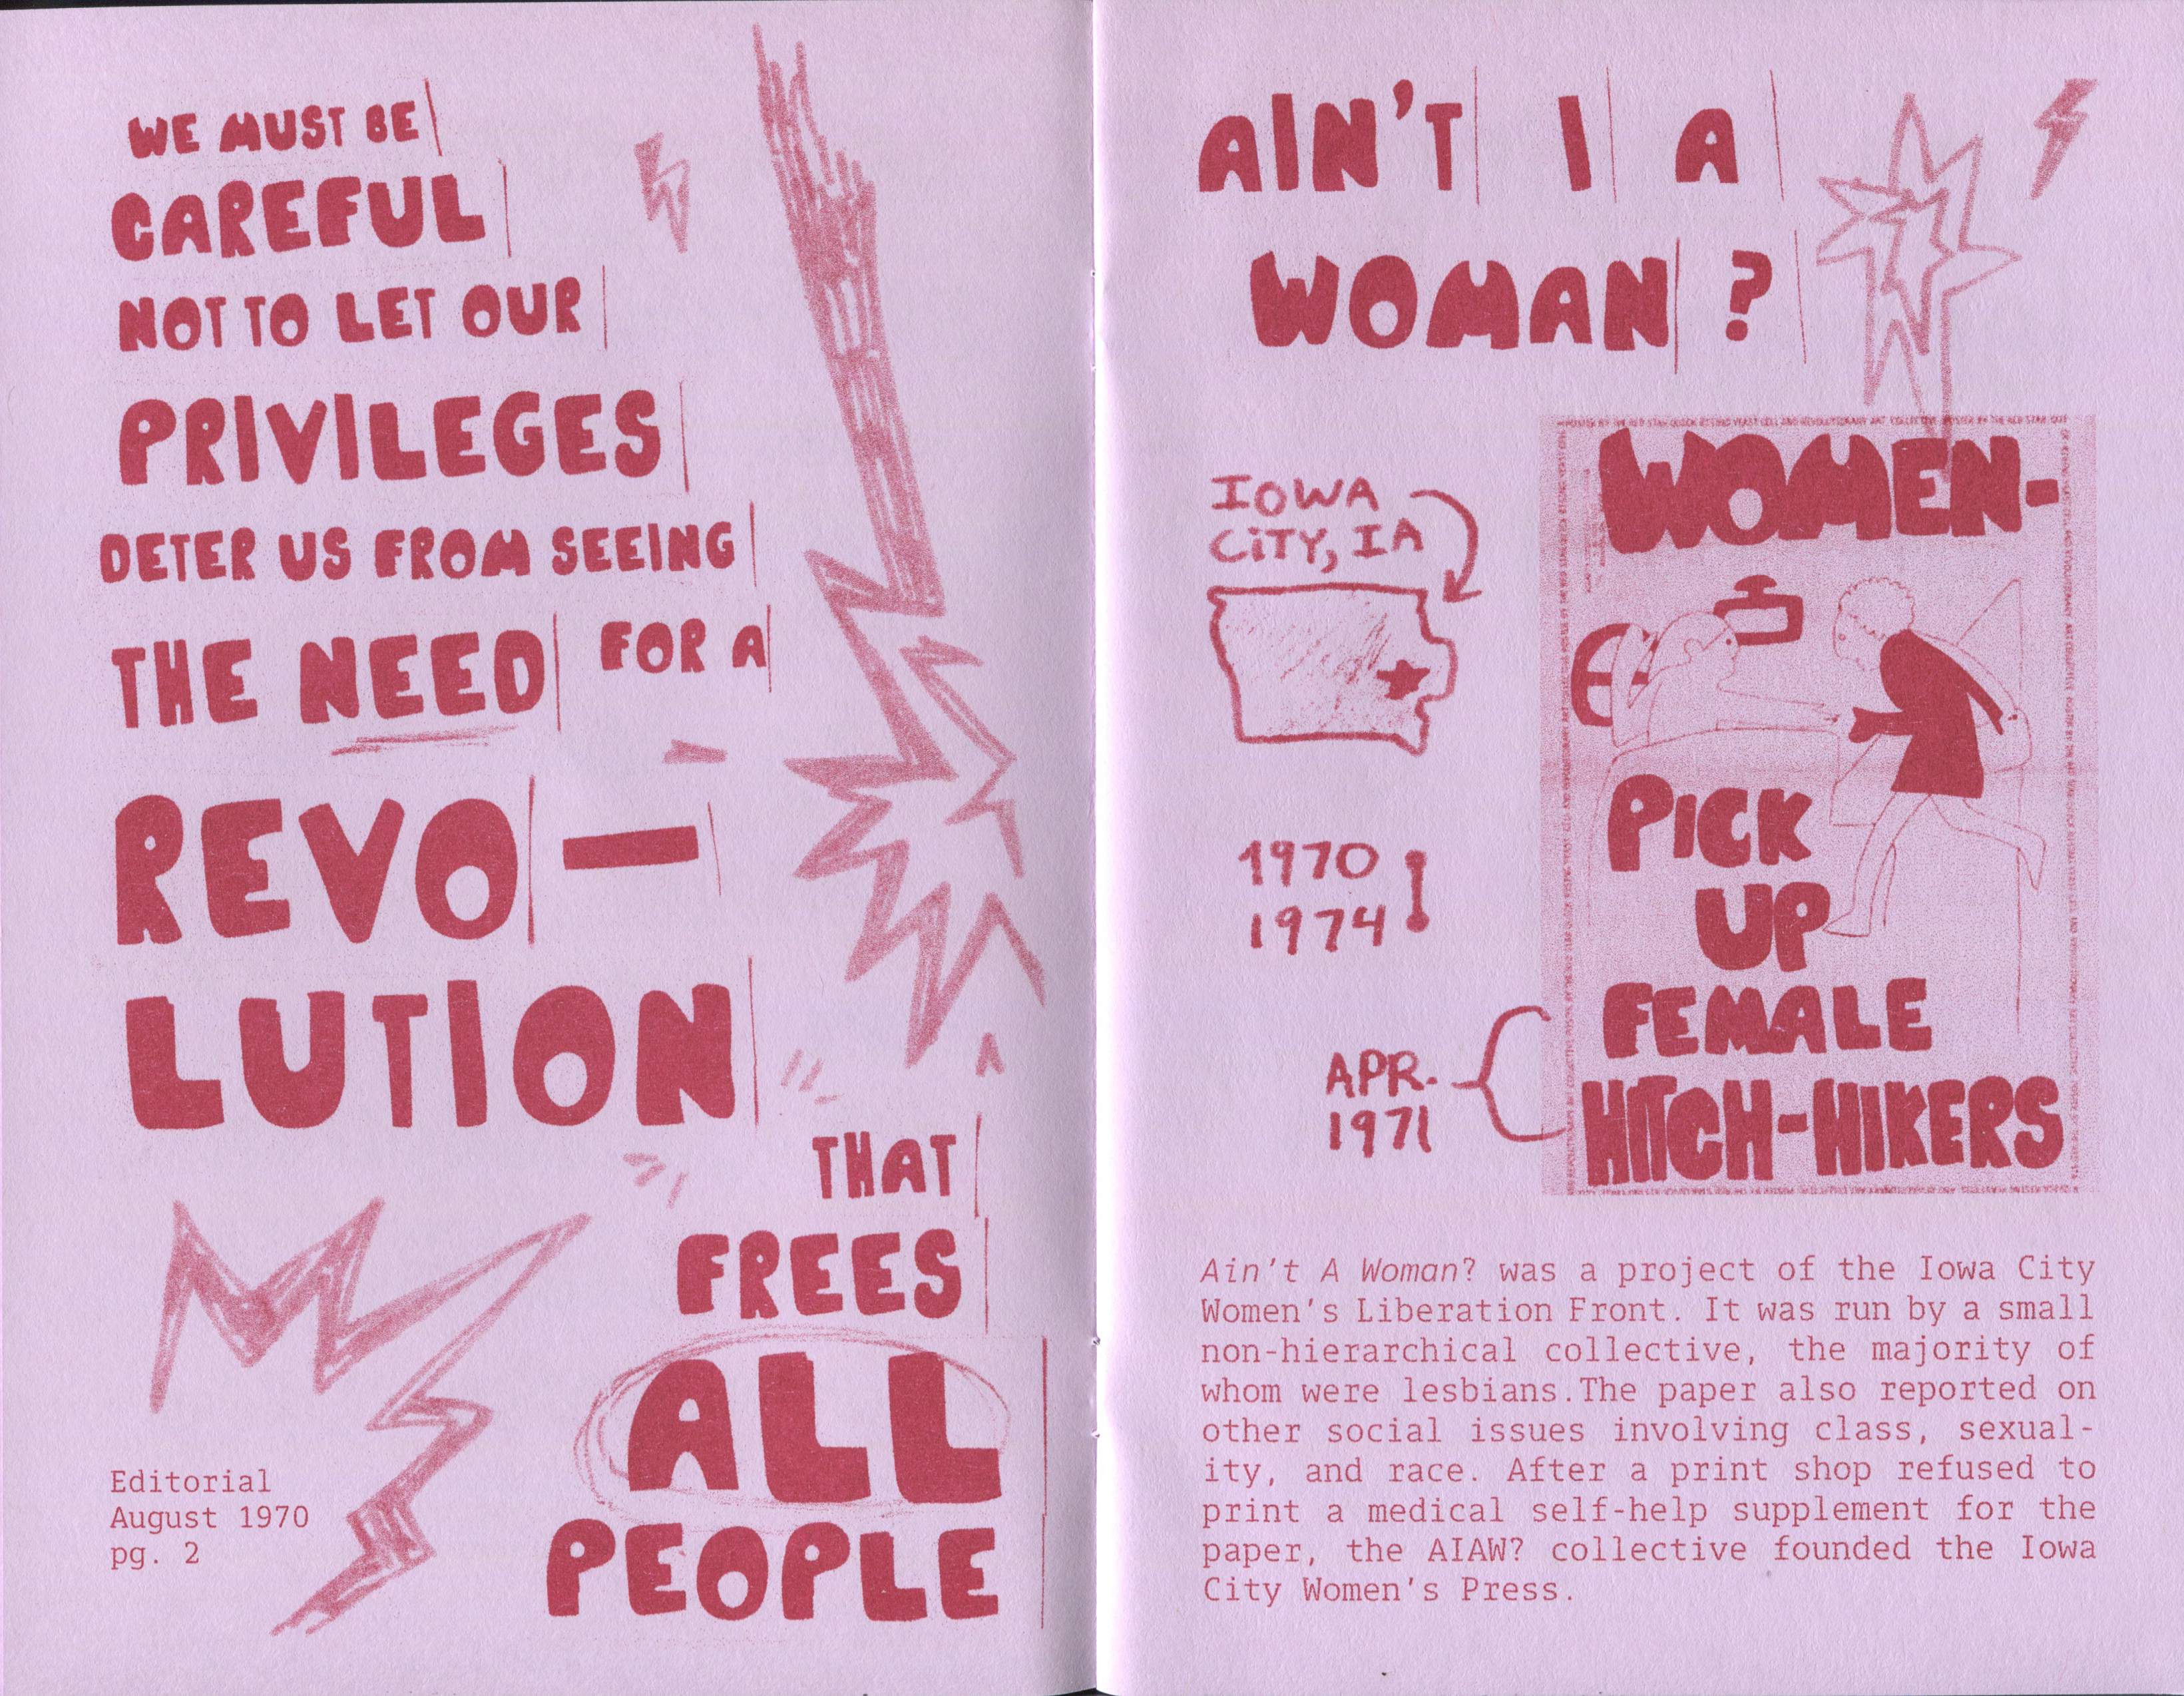 WE MUST BE
CAREFUL
NOT TO LET OUR
PRIVILEGES
DETER US FROM SEEING
THE NEED FOR A
REVO—
LUTION
THAT
FREES
ALL
PEOPLE
Editorial
August 1970
pg. 2
AIN'T I A
WOMAN?
IOWA
CITY, IA
1970
1974
APR.
1971
WOMEN-
PICK
UP
FEMALE
HITCH-HIKERS
Ain't A Woman? was a project of the Iowa City
Women's Liberation Front. It was run by a small
non-hierarchical collective, the majority of
whom were lesbians.The paper also reported on
other social issues involving class, sexual-
ity, and race. After a print shop refused to
print a medical self-help supplement for the
paper, the AIAW? collective founded the Iowa
City Women's Press.